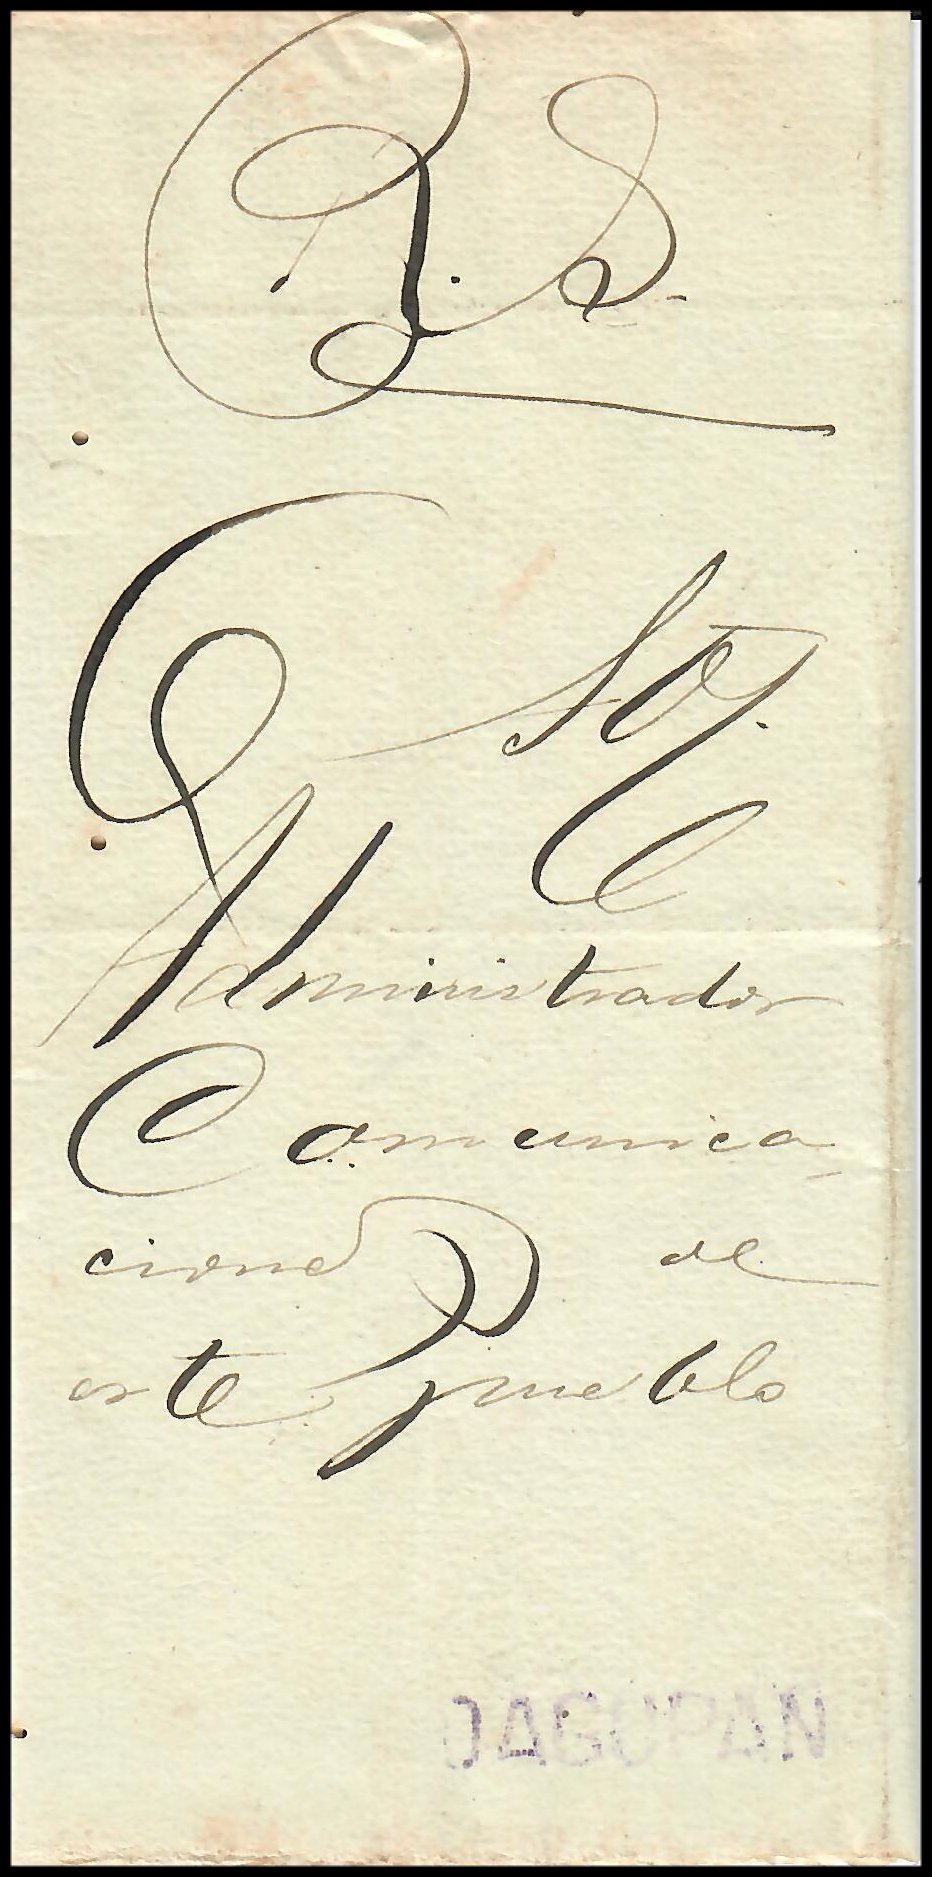 R. S.
Sor.
Administrador
Comunica
ciones de
este Pueblo
DAGUPAN